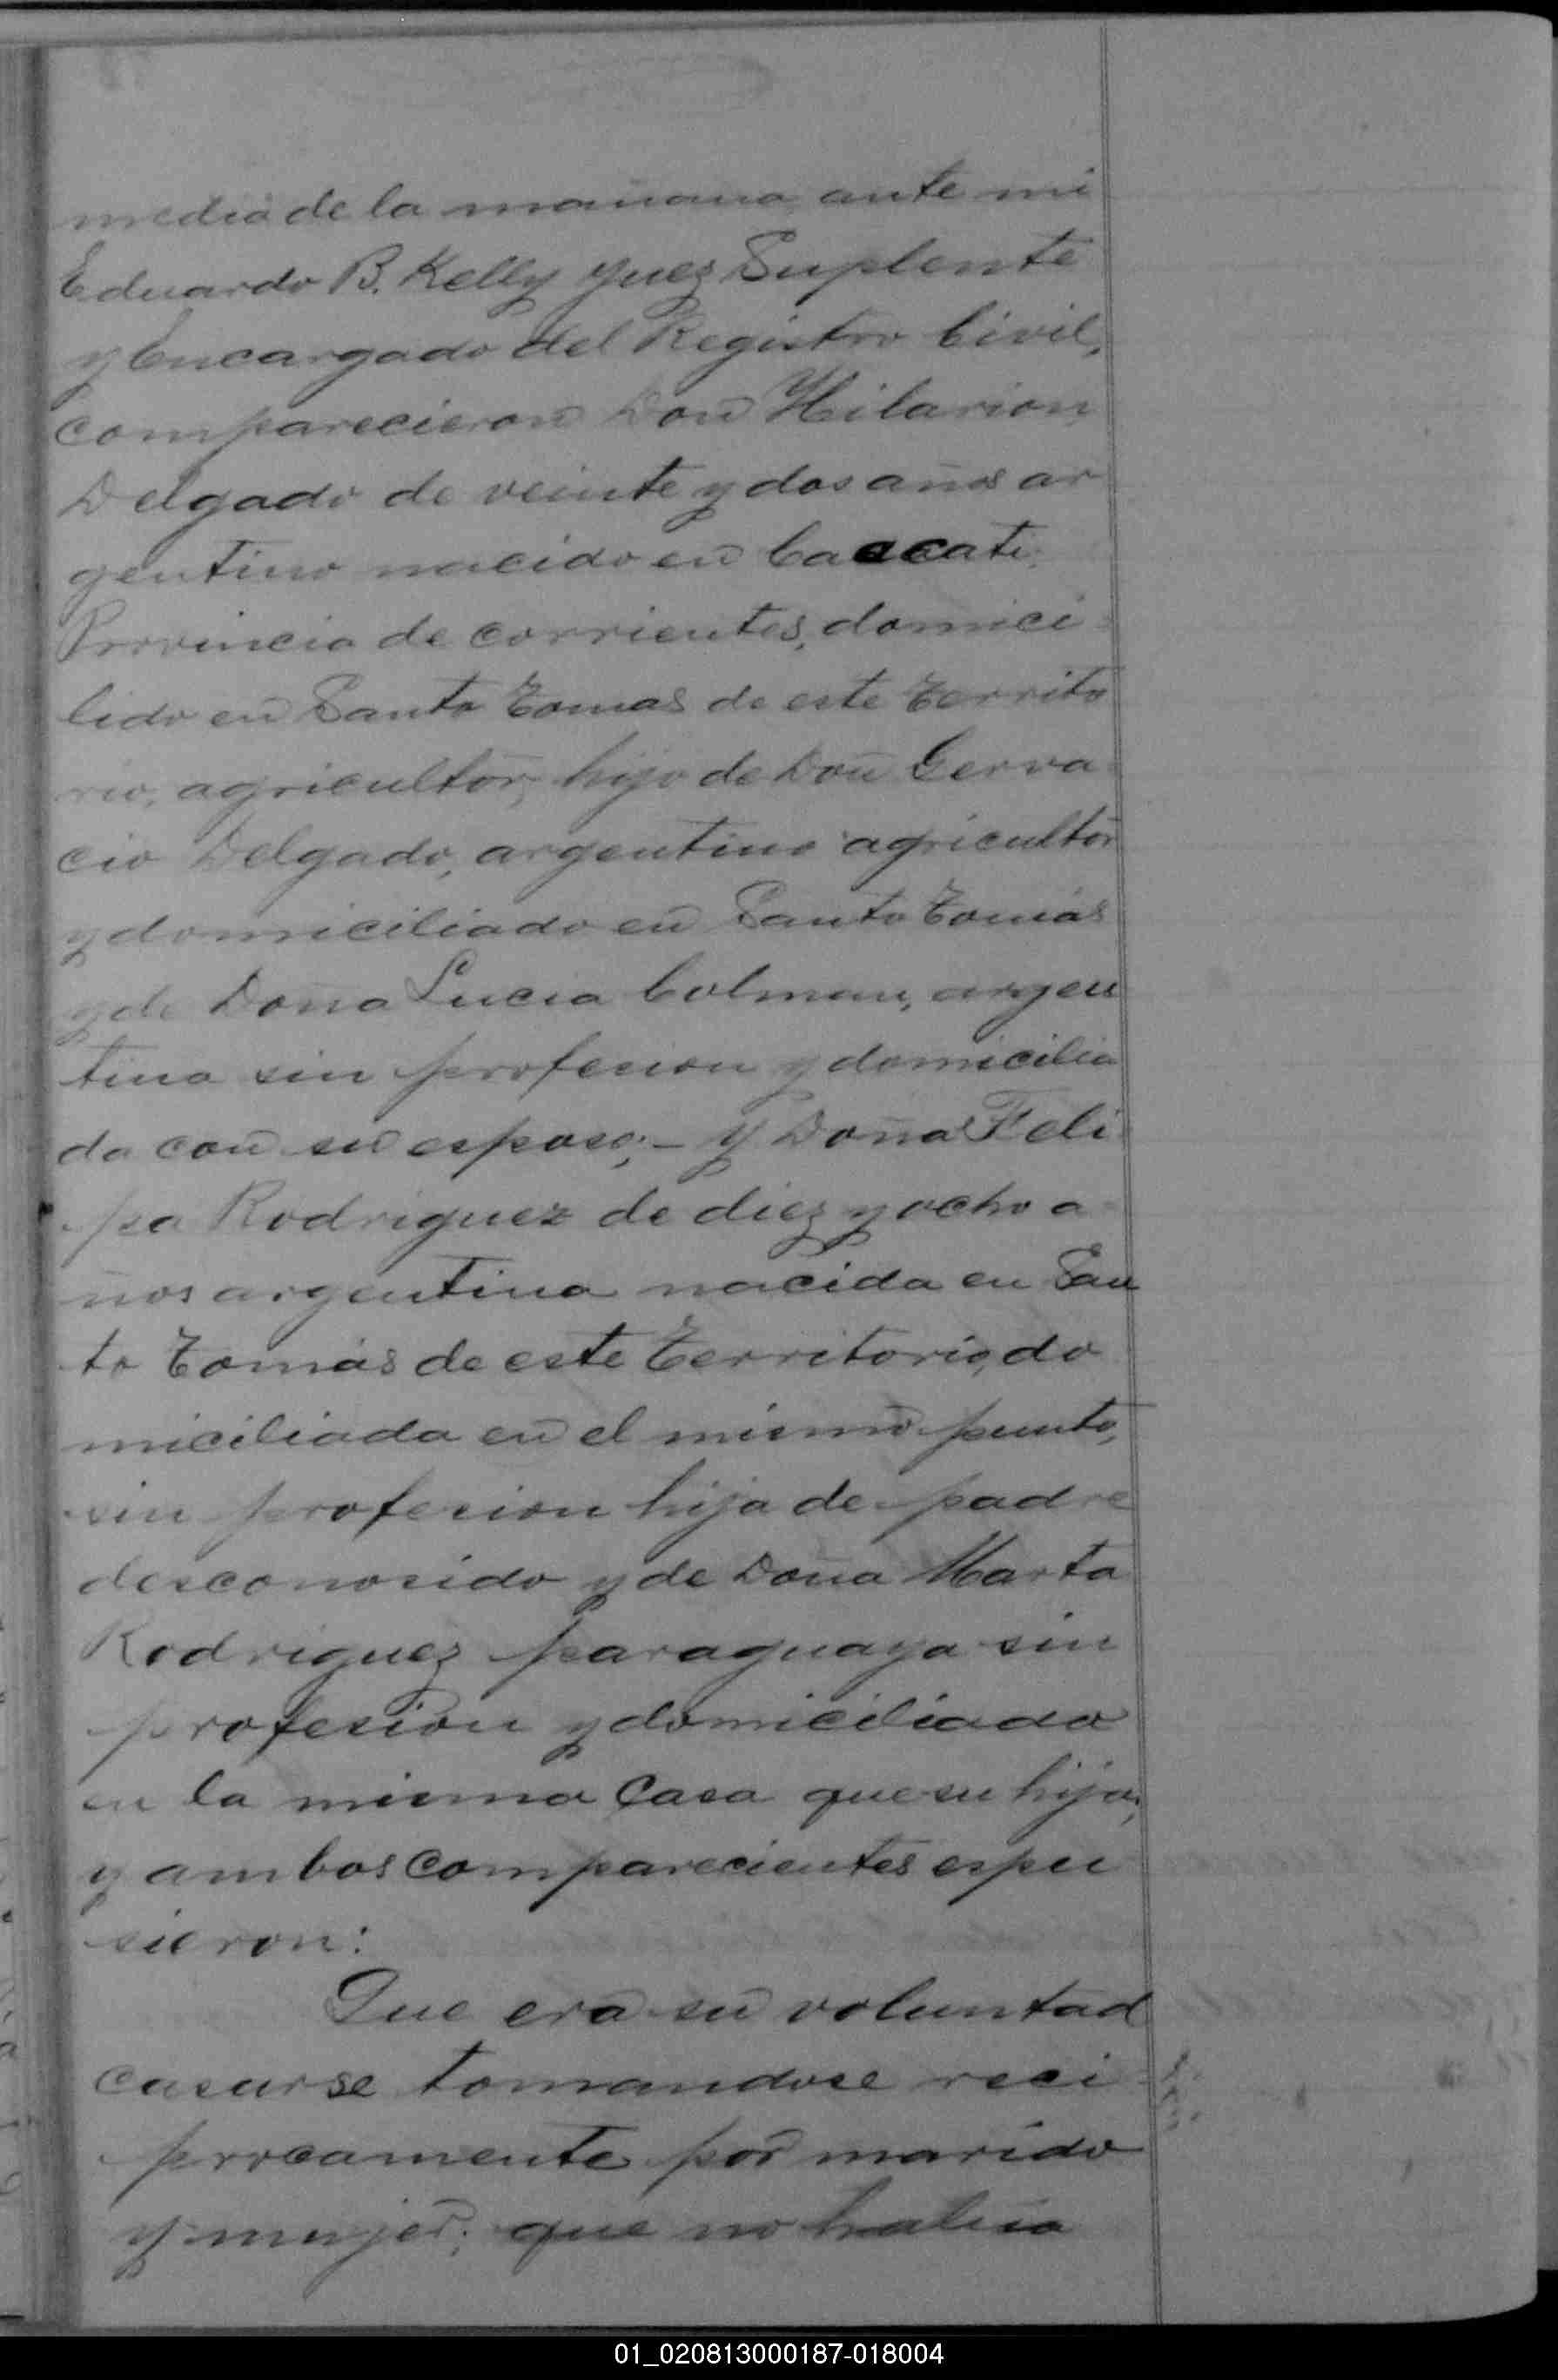 media de la mañana ante mi
Eduardo B. Kelly Juez Suplente
y Encargado del Registro Civil,
comparecieron Don Hilarion
Delgado de veinte y dos años ar
gentino nacido en Caacati
Provincia de corrientes, domici
lido en Santo Tomas de este Territo
rio, agricultor, hijo de Don Gerva
cio Delgado, argentino agricultor
y domiciliado en Santo Tomás
y de Doña Lucia Colman, argen
tina sin profesion y domicilia
da con su esposo;- y Doña Feli
pa Rodriguez de diez y ocho a
ños argentina nacida en San
to Tomás de este Territorio, do
miciliada en el mismo punto,
sin profesion hija de padre
desconosido y de Doña Marta
Rodriguez paraguaya sin
profesion y domiciliada
en la misma Casa que su hija;
y ambos Comparecientes espu
sieron:
Que era su voluntad
casarse tomandose reci
procamente por marido
y mujer; que no habia
01_020813000187-018004